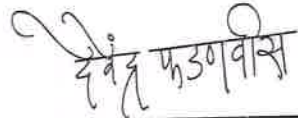 देवेंद्र फडणवीस